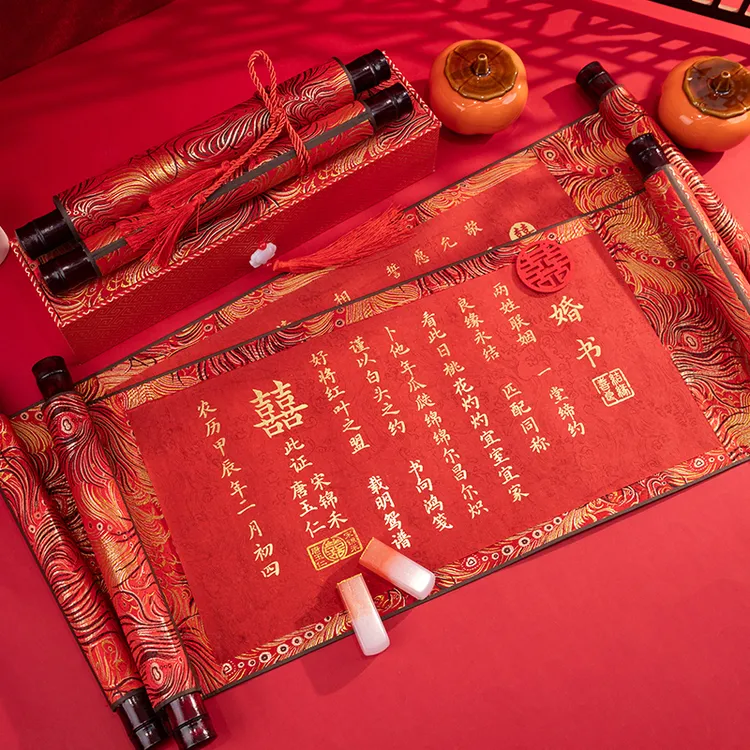 婚书
两姓联姻 一堂缔约
良缘永结 匹配同称
看此日桃花灼灼宜室宜家
卜他年瓜瓞绵绵尔昌尔炽
谨以白头之约 书向鸿笺
好将红叶之盟 载明鸳谱
囍 此证
宋锦禾
唐玉仁
农历甲辰年二月初四
囍
囍
囍
元
愿
誓
相